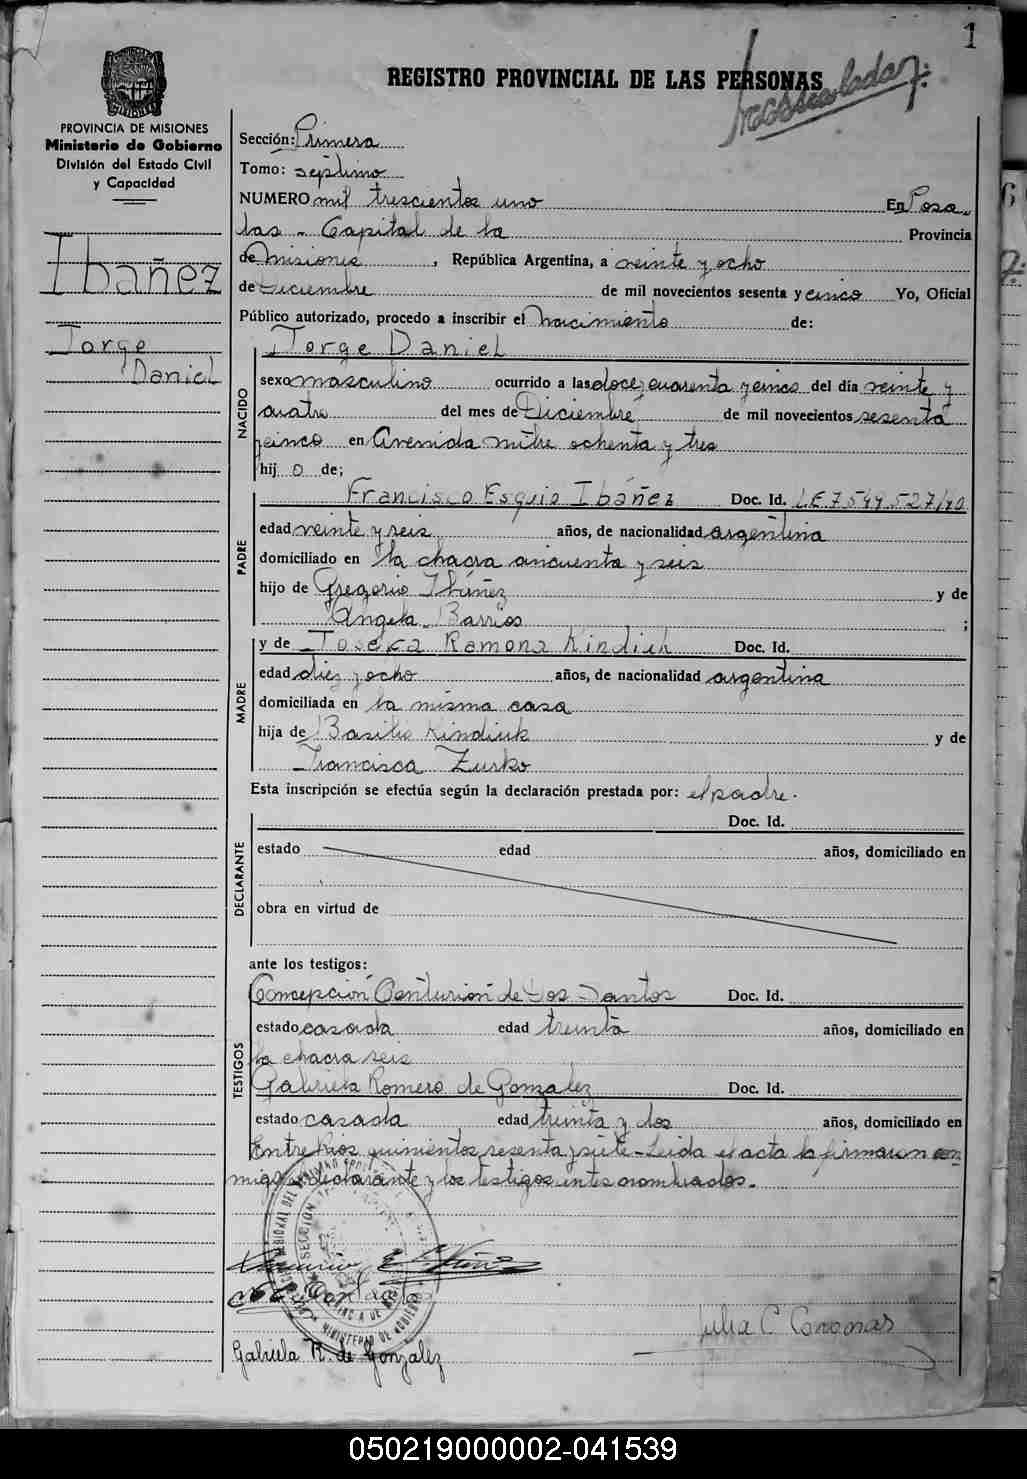 1
REGISTRO PROVINCIAL DE LAS PERSONAS
PROVINCIA DE MISIONES
Ministerio de Gobierno
División del Estado Civil
y Capacidad
Ibañez
Jorge
Daniel
Sección: Primera
Tomo: séptimo
NUMERO mil trescientos uno En Posa-
das - Capital de la Provincia
de Misiones, República Argentina, a veinte y ocho
de Diciembre de mil novecientos sesenta y cinco Yo, Oficial
Público autorizado, procedo a inscribir el Nacimiento de:
NACIDO
Jorge Daniel
sexo masculino ocurrido a las doce y cuarenta y cinco del día veinte y
cuatro del mes de Diciembre de mil novecientos sesenta
y cinco en Avenida mitre ochenta y tres
hij o de;
PADRE
Francisco Esquio Ibáñez Doc. Id. L.E. 7.544.527/40
edad veinte y seis años, de nacionalidad argentina
domiciliado en la chacra cincuenta y seis
hijo de Gregorio Ibáñez y de
Angela Barrios ;
MADRE
y de Josefa Ramona Kindiuk Doc. Id.
edad diez y ocho años, de nacionalidad argentina
domiciliada en la misma casa
hija de Basilio Kindiuk y de
Francisca Zurko
Esta inscripción se efectúa según la declaración prestada por: el padre.
DECLARANTE
Doc. Id.
estado edad años, domiciliado en
obra en virtud de
ante los testigos:
TESTIGOS
Concepción Centurión de Dos Santos Doc. Id.
estado casada edad treinta años, domiciliado en
la chacra seis
Gabriela Romero de Gonzalez Doc. Id.
estado casada edad treinta y dos años, domiciliado en
Entre Rios quinientos sesenta y siete - Leida el acta la firmaron con-
migo el declarante y los testigos antes nombrados.
MINISTERIO DE GOBIERNO
Julia C
Gabriela R. de Gonzalez
050219000002-041539